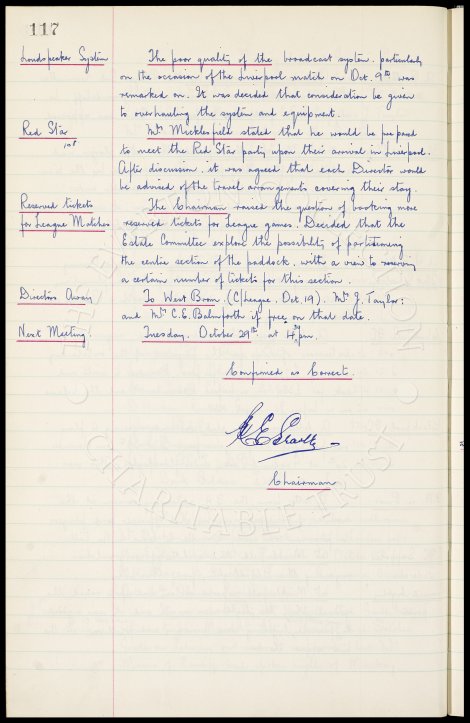 117
Loudspeaker System The poor quality of the broadcast system, particularly
on the occasion of the Liverpool match on Oct. 9th was
remarked on. It was decided that consideration be given
to overhauling the system and equipment.
Red Star Mr. Micklesfield stated that he would be prepared
to meet the Red Star party upon their arrival in Liverpool.
After discussion, it was agreed that each Director would
be advised of the travel arrangements covering their stay.
Reserved tickets The Chairman raised the question of booking more
for League Matches reserved tickets for League games. Decided that the
Estate Committee explore the possibility of partitioning
the centre section of the paddock, with a view to reserving
a certain number of tickets for this section.
Directors Away To West Brom. (C/League. Oct 19). Mr. J. Taylor:
and Mr. C.E. Balmforth if free on that date.
Next Meeting Tuesday, October 29th at 4.30 pm.
Confirmed as Correct.
Chairman
CHARITABLE TRUST